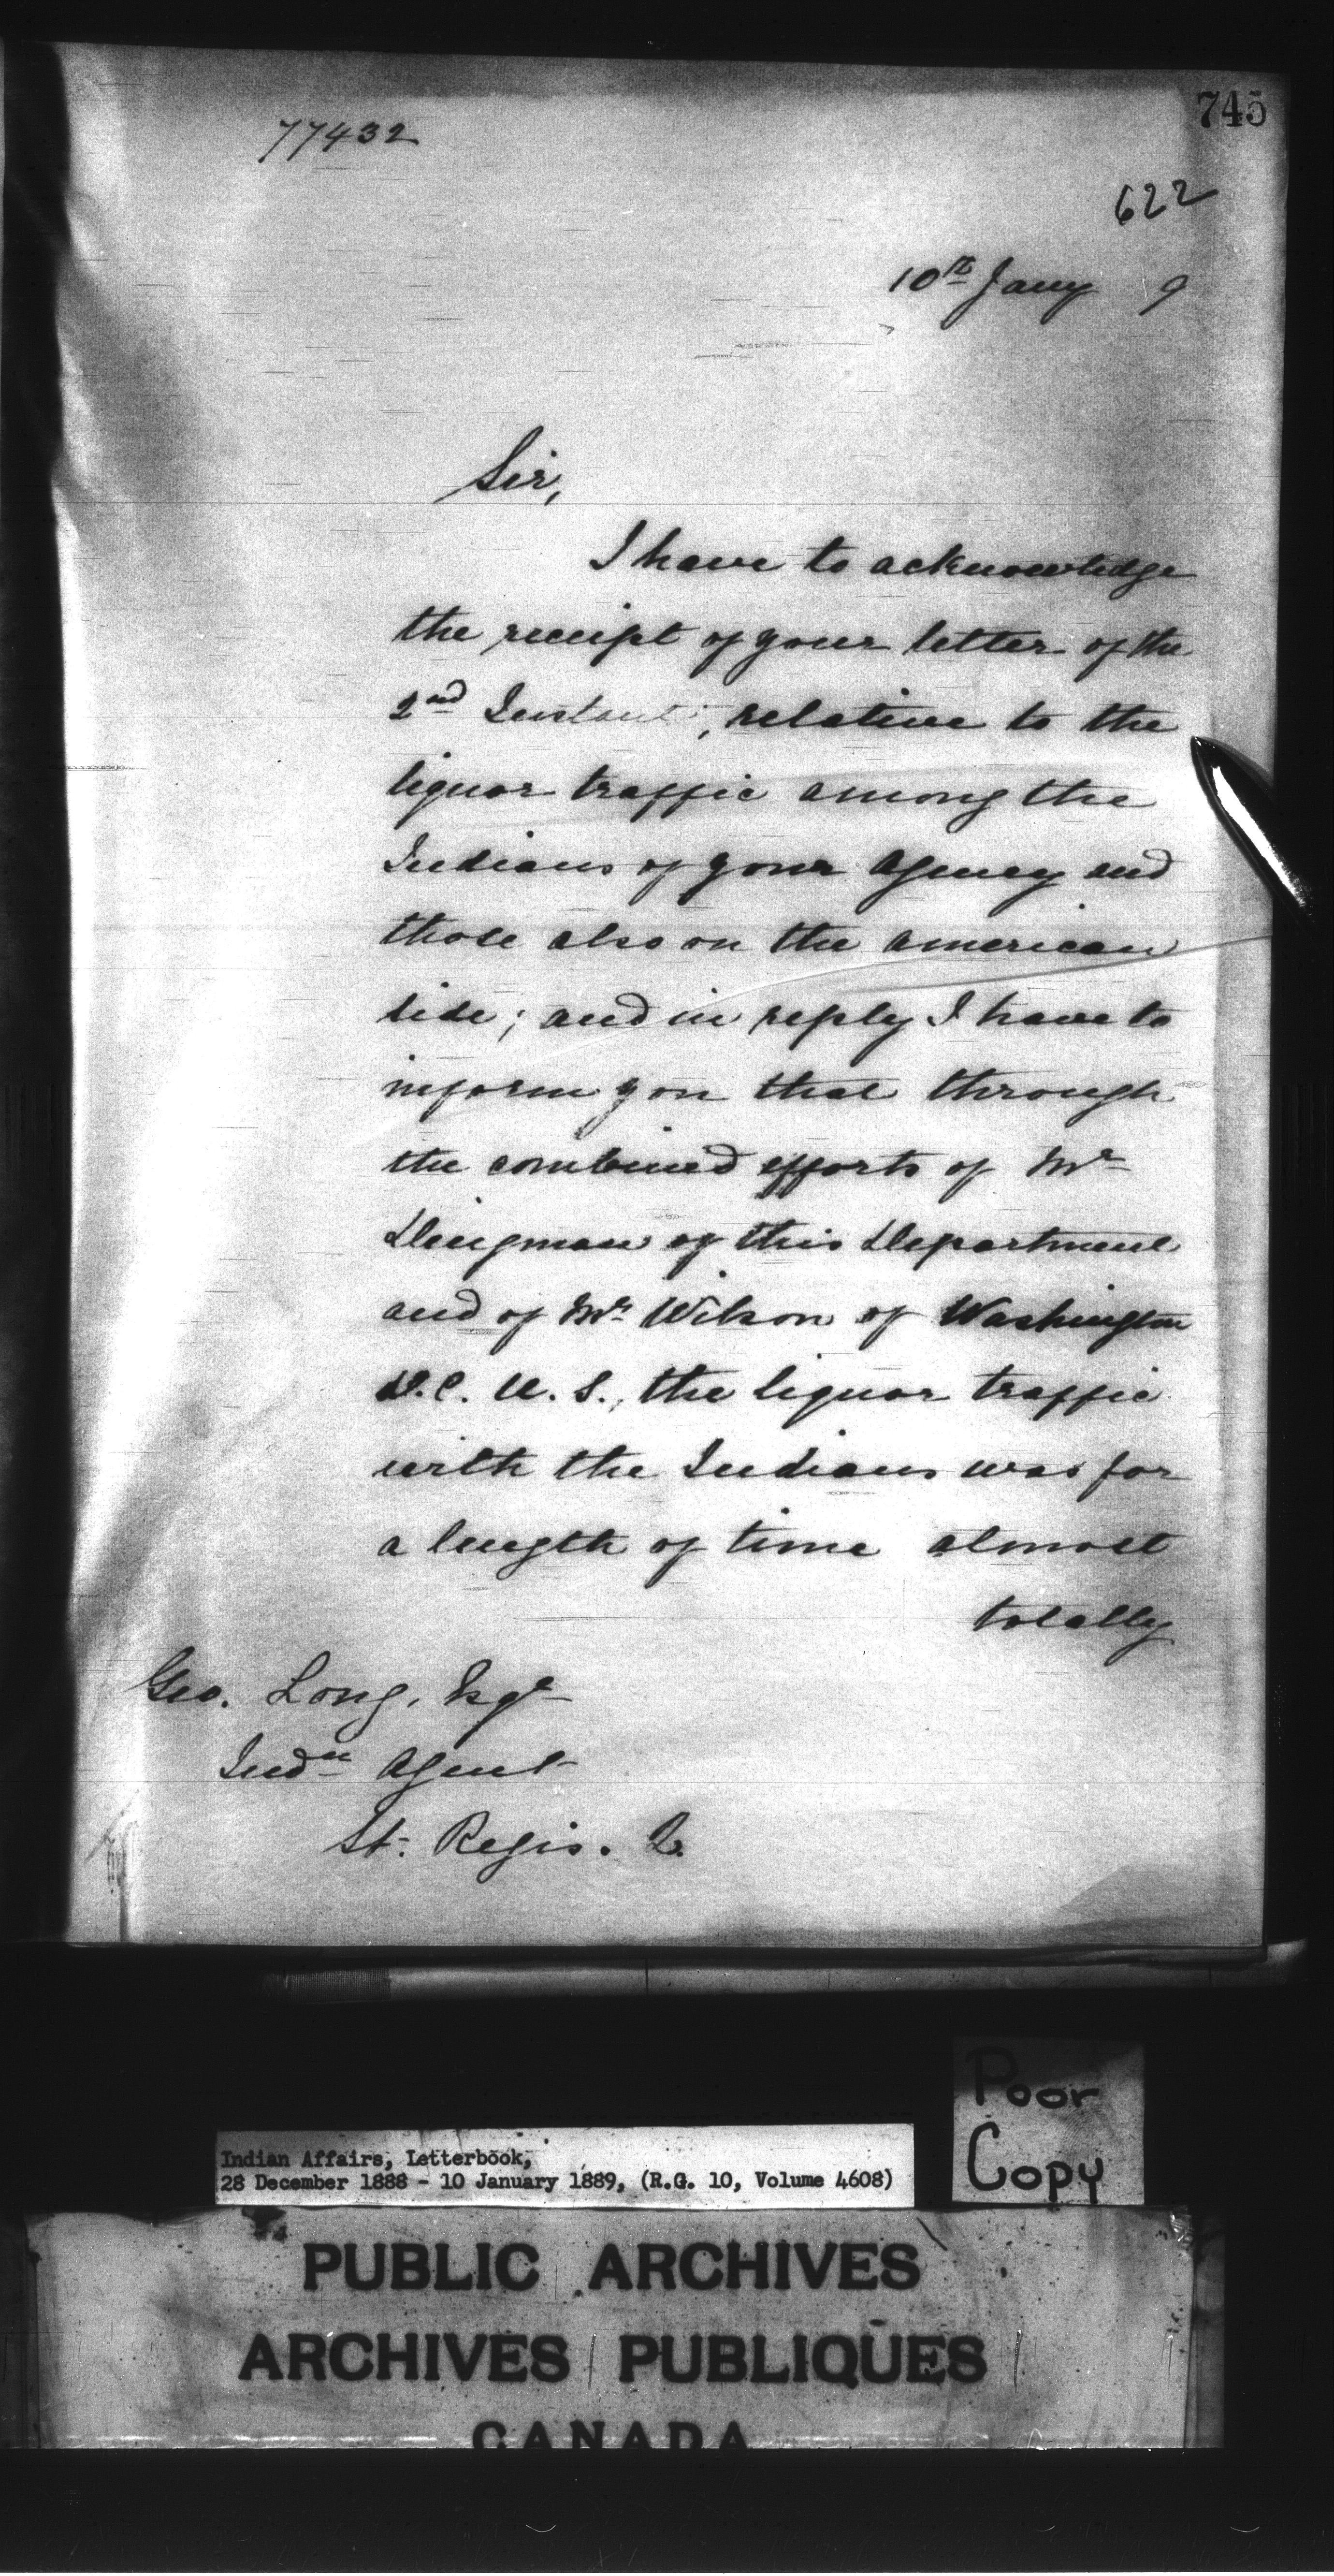 745
77432
622
10th Jany 9
Sir,
I have to acknowledge
the receipt of your letter of the
2nd Instant, relative to the
liquor traffic among the
Indians of your Agency and
those also on the American
side; and in reply I have to
inform you that through
the combined efforts of Mr
Dingman of this Department
and of Mr Wilson of Washington
D.C. U.S., the liquor traffic
with the Indians was for
a length of time almost
totally
Geo. Long, Esqr
Indn Agent
St. Regis. Q.
Poor
Copy
Indian Affairs, Letterbook,
28 December 1888 - 10 January 1889, (R.G. 10, Volume 4608)
PUBLIC ARCHIVES
ARCHIVES PUBLIQUES
CANADA